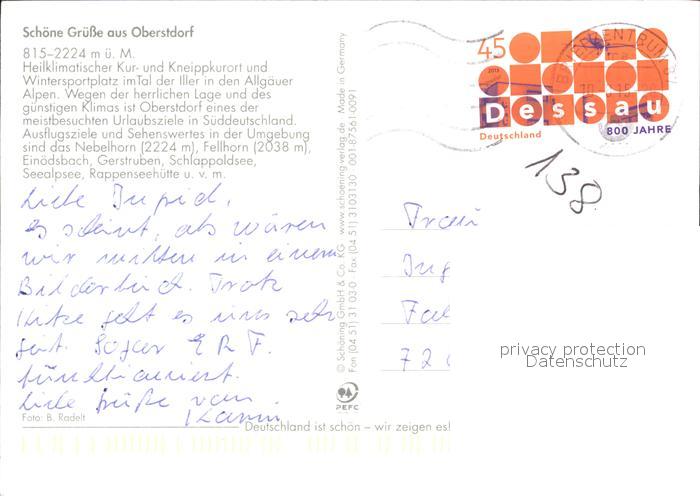 Schöne Grüße aus Oberstdorf
815–2224 m ü. M.
Heilklimatischer Kur- und Kneippkurort und
Wintersportplatz imTal der Iller in den Allgäuer
Alpen. Wegen der herrlichen Lage und des
günstigen Klimas ist Oberstdorf eines der
meistbesuchten Urlaubsziele in Süddeutschland.
Ausflugsziele und Sehenswertes in der Umgebung
sind das Nebelhorn (2224 m), Fellhorn (2038 m),
Einödsbach, Gerstruben, Schlappoldsee,
Seealpsee, Rappenseehütte u. v. m.
Liebe Ingrid,
es scheint, als wären
wir mitten in einem
Bilderbuch. Trotz
Hitze geht es uns sehr
gut. Sogar ERF.
funktioniert.
Liebe Grüße von
Karin
Foto: B. Radelt
© Schöning GmbH & Co. KG www.schoening-verlag.de Made in Germany
Fon (04 51) 31 03-0 Fax (04 51) 3103130 001-87561-0091
PEFC
Deutschland ist schön – wir zeigen es!
45
2013
Dessau
800 JAHRE
Deutschland
BRIEFZENTRUM
138
Frau
Ing
72
privacy protection
Datenschutz